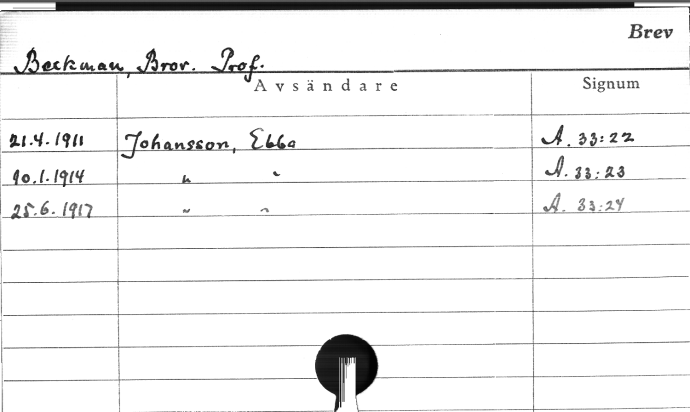 Brev
Beckman, Bror. Prof.
Avsändare Signum
21.4.1911 Johansson, Ebba A. 33:22
10.1.1914 " " A. 33:23
25.6.1917 " " A. 33:24